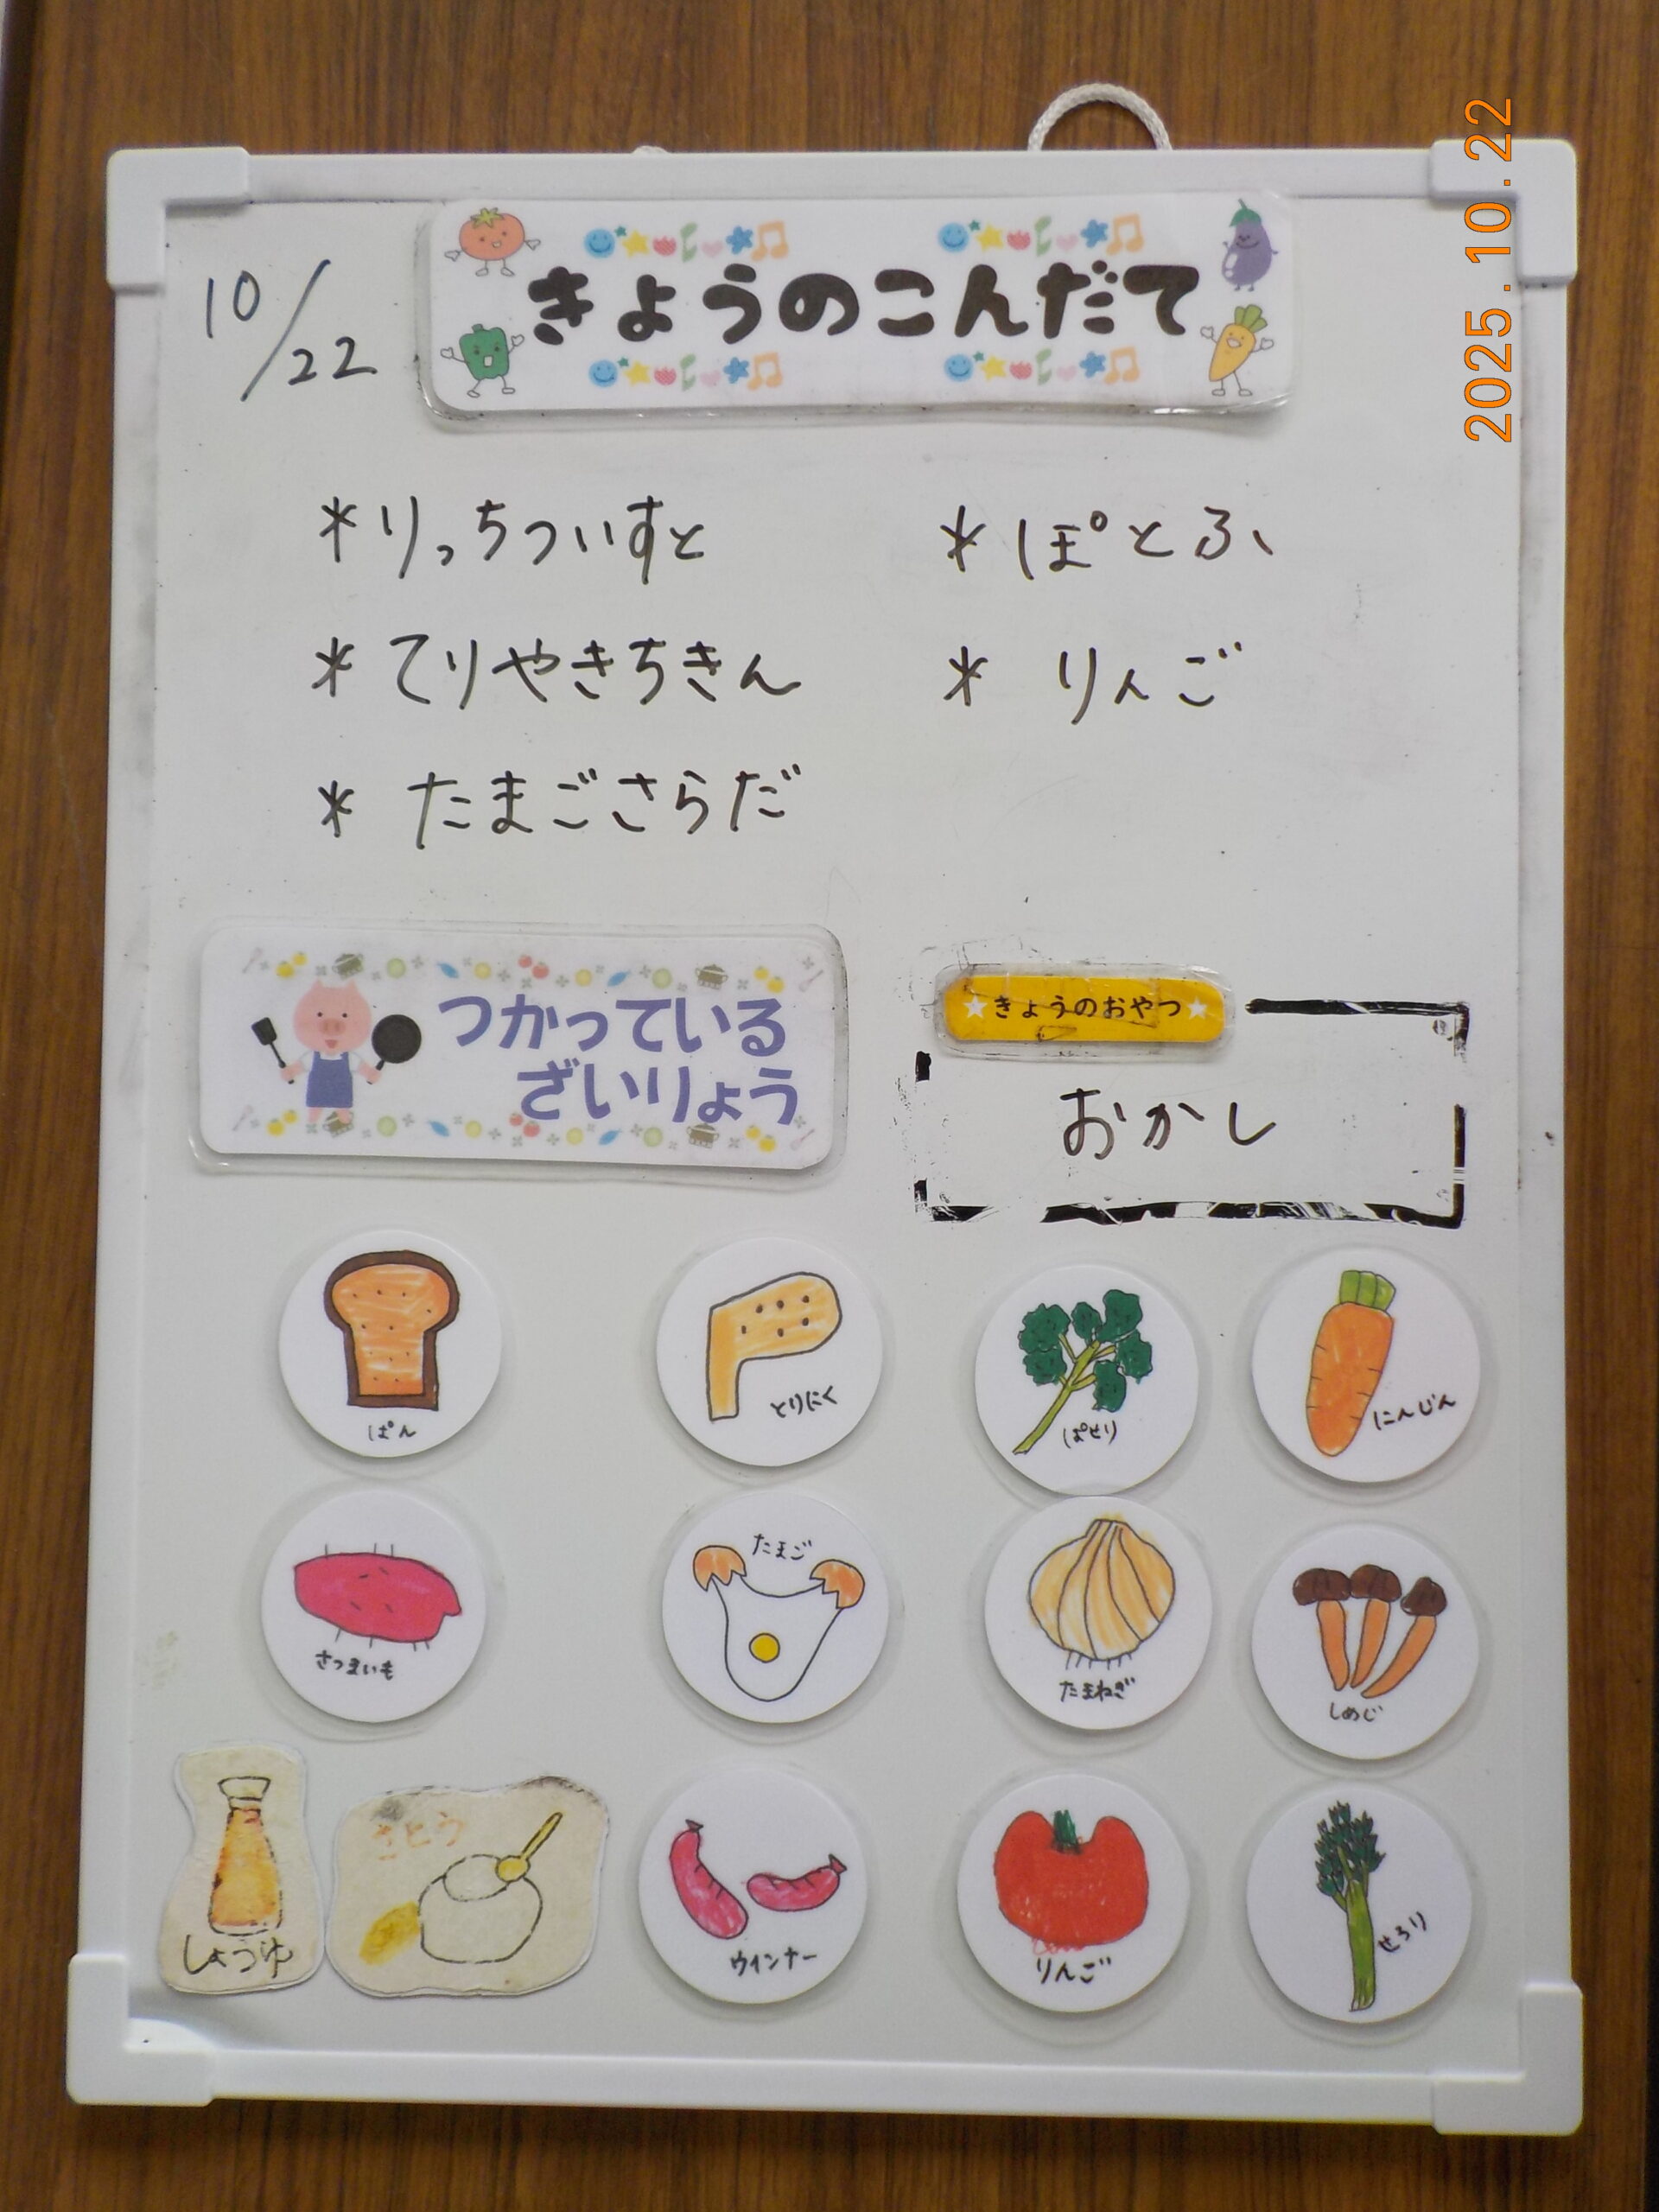 2025.10.22
10/22
きょうのこんだて
*りっちついすと
*てりやきちきん
*たまごさらだ
*ぽとふ
*りんご
つかっている
ざいりょう
★きょうのおやつ★
おかし
ぱん
とりにく
ぱせり
にんじん
さつまいも
たまご
たまねぎ
しめじ
しょうゆ
さとう
ウインナー
りんご
せろり